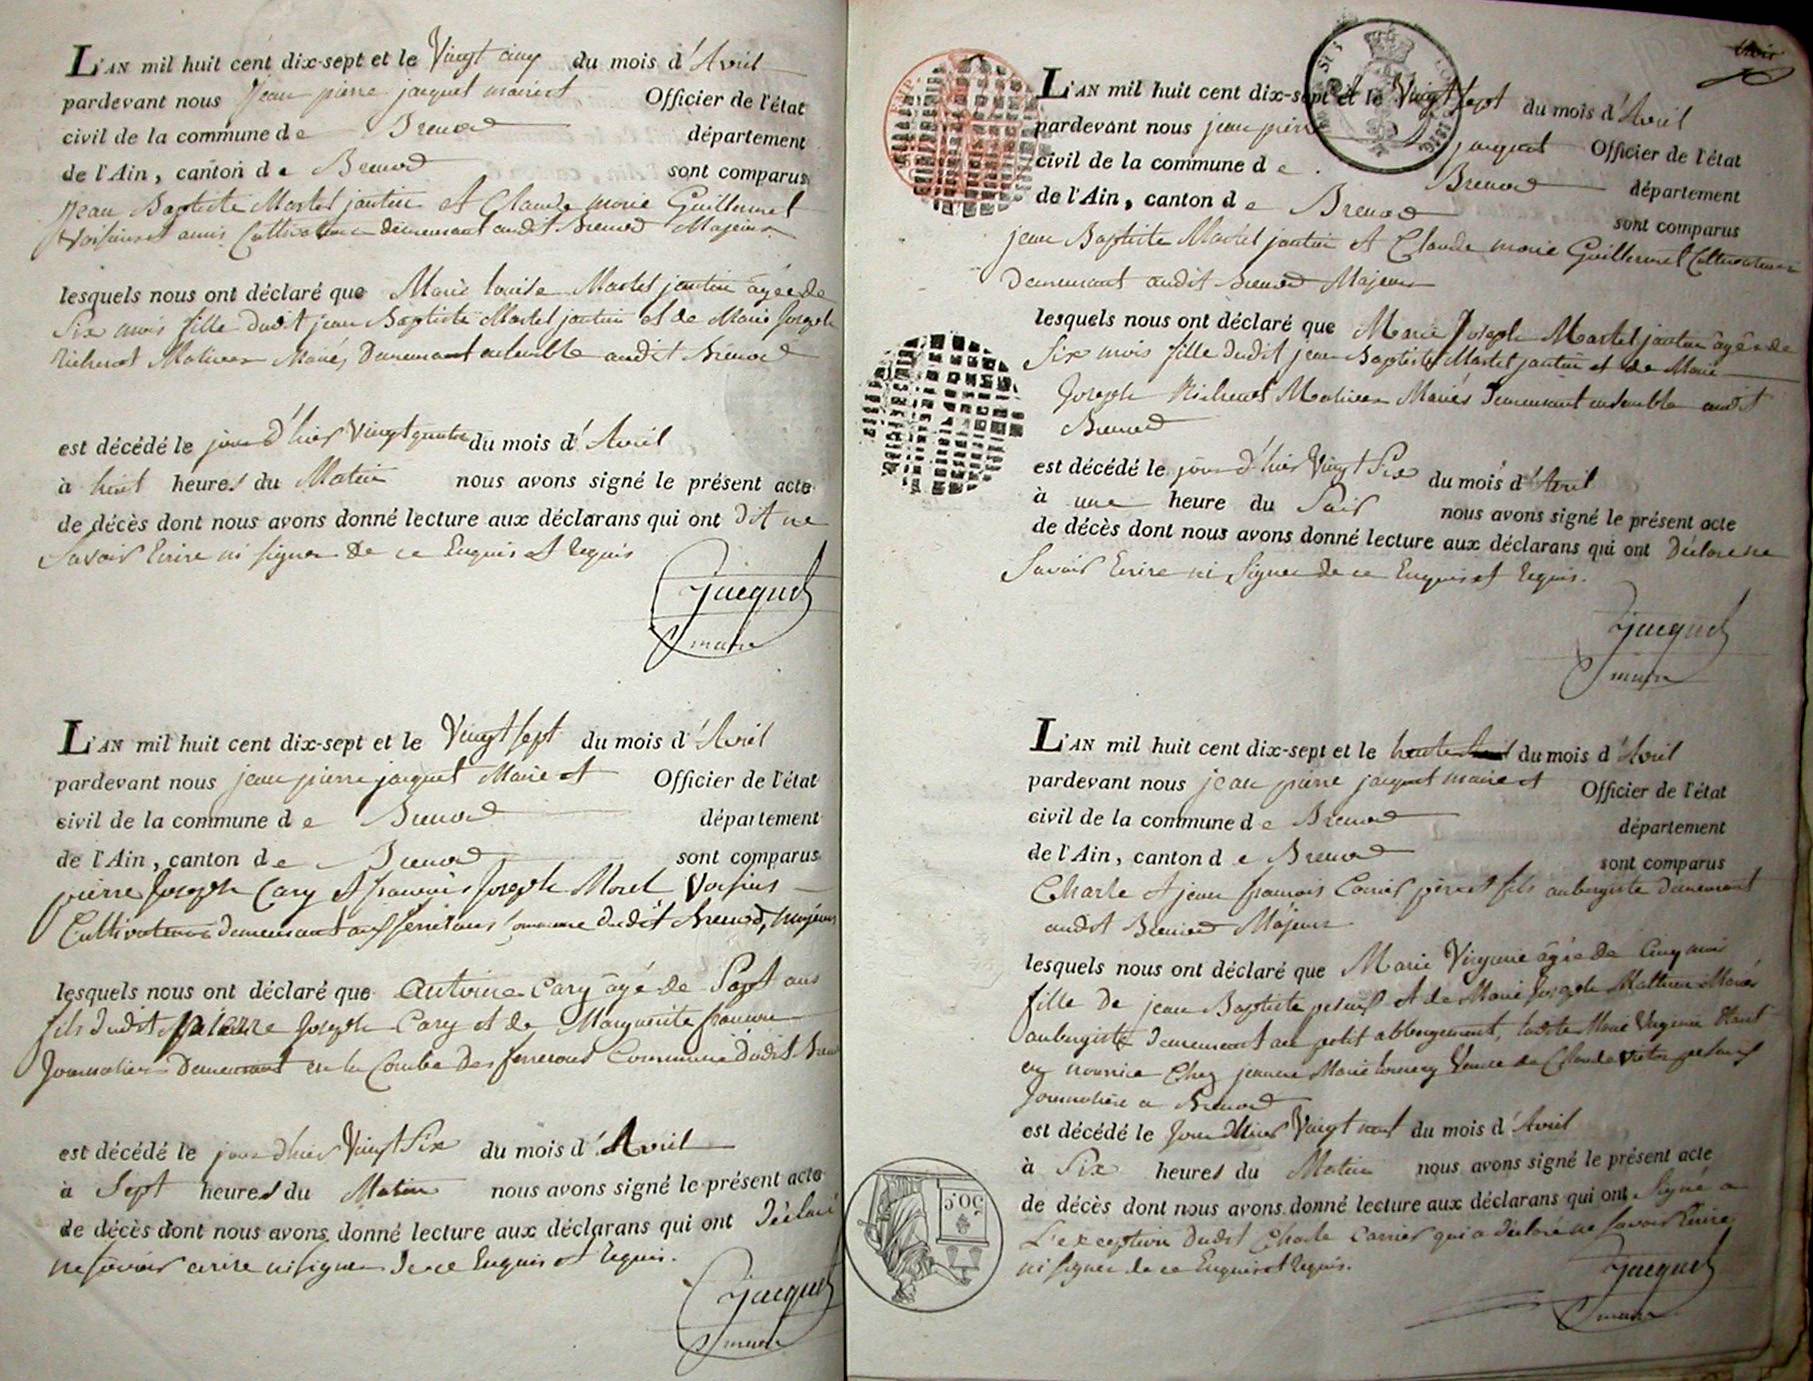 L'AN mil huit cent dix-sept et le Vingt cinq du mois d'Avril
pardevant nous Jean pierre jacquet maire et Officier de l'état
civil de la commune de Brenod département
de l'Ain, canton de Brenod sont comparus
Jean Baptiste Martel jantin et Claude marie Guillermet
Voisins et amis Cultivateurs demeurant audit Brenod Majeurs
lesquels nous ont déclaré que Marie louise Martel jantin âgée de
Six mois fille dudit jean Baptiste Martel jantin et de Marie Joseph
Mariés Demeurant ensemble audit Brenod
est décédé le jour d'hier Vingt quatre du mois d'Avril
à huit heures du Matin nous avons signé le présent acte
de décès dont nous avons donné lecture aux déclarans qui ont dit ne
Savoir Ecrire ni signer de ce Enquis et Requis
Jacquet
maire
L'AN mil huit cent dix-sept et le Vingt sept du mois d'Avril
pardevant nous jean pierre jacquet Maire et Officier de l'état
civil de la commune de Brenod département
de l'Ain, canton de Brenod sont comparus
pierre Joseph Cary et françois Joseph Morel Voisins
Cultivateurs demeurant aux commune dudit Brenod, majeurs
lesquels nous ont déclaré que Antoine Cary âgé de Sept ans
fils dudit pierre Joseph Cary et de Marguerite
Journaliers Demeurant en la Combe des Commune dudit
est décédé le jour d'hier Vingt Six du mois d'Avril
à Sept heures du Matin nous avons signé le présent acte
de décès dont nous avons donné lecture aux déclarans qui ont Déclaré
ne savoir ecrire ni signer de ce Enquis et Requis.
Jacquet
maire
L'AN mil huit cent dix-sept et le Vingt sept du mois d'Avril
pardevant nous jean pierre jacquet Officier de l'état
civil de la commune de Brenod département
de l'Ain, canton de Brenod sont comparus
jean Baptiste Martel jantin et Claude marie Guillermet Cultivateurs
Demeurant audit Brenod Majeurs
lesquels nous ont déclaré que Marie Joseph Martel jantin âgée de
Six mois fille dudit jean Baptiste Martel jantin et de Marie
Joseph Mariés demeurant ensemble audit
Brenod
est décédé le jour d'hier Vingt Six du mois d'Avril
à une heure du Soir nous avons signé le présent acte
de décès dont nous avons donné lecture aux déclarans qui ont Déclaré ne
Savoir Ecrire ni Signer de ce Enquis et Requis.
Jacquet
maire
L'AN mil huit cent dix-sept et le du mois d'Avril
pardevant nous jean pierre jacquet maire et Officier de l'état
civil de la commune de Brenod département
de l'Ain, canton de Brenod sont comparus
Charle et jean françois Carrier père et fils aubergiste demeurant
audit Brenod Majeurs
lesquels nous ont déclaré que Marie Virginie âgée de Cinq mois
fille de jean Baptiste et de Marie Joseph Mariés
aubergiste demeurant au petit abbergement, ladite Marie Virginie Etant
en nourrice Chez jeanne Marie Veuve de Claude
journalière a Brenod
est décédé le Jour d'hier Vingt neuf du mois d'Avril
à Six heures du Matin nous avons signé le présent acte
de décès dont nous avons donné lecture aux déclarans qui ont Signé a
L'exception dudit Charle Carrier qui a déclaré ne Savoir Ecrire
ni signer de ce Enquis et Requis.
Jacquet
maire
50C.